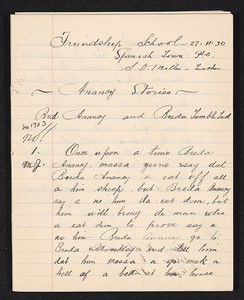 Friendship School - 27.11.30
Spanish Town P.O.
Teacher
~ Anancy Stories ~
Bred Anancy and Breda Tumble Tud
No 1
1. Once upon a time Breda
Anancy massa yerre say dat
Breda Anancy a eat off all
a him sheep but Breda Anancy
say e no him da eat dem, but
him will bring de man who
a eat dem to prove say e
no him. Breda Anancy go to
Breda Monkey and tell him
dat him massa a go mek a
hell of a ball at him house